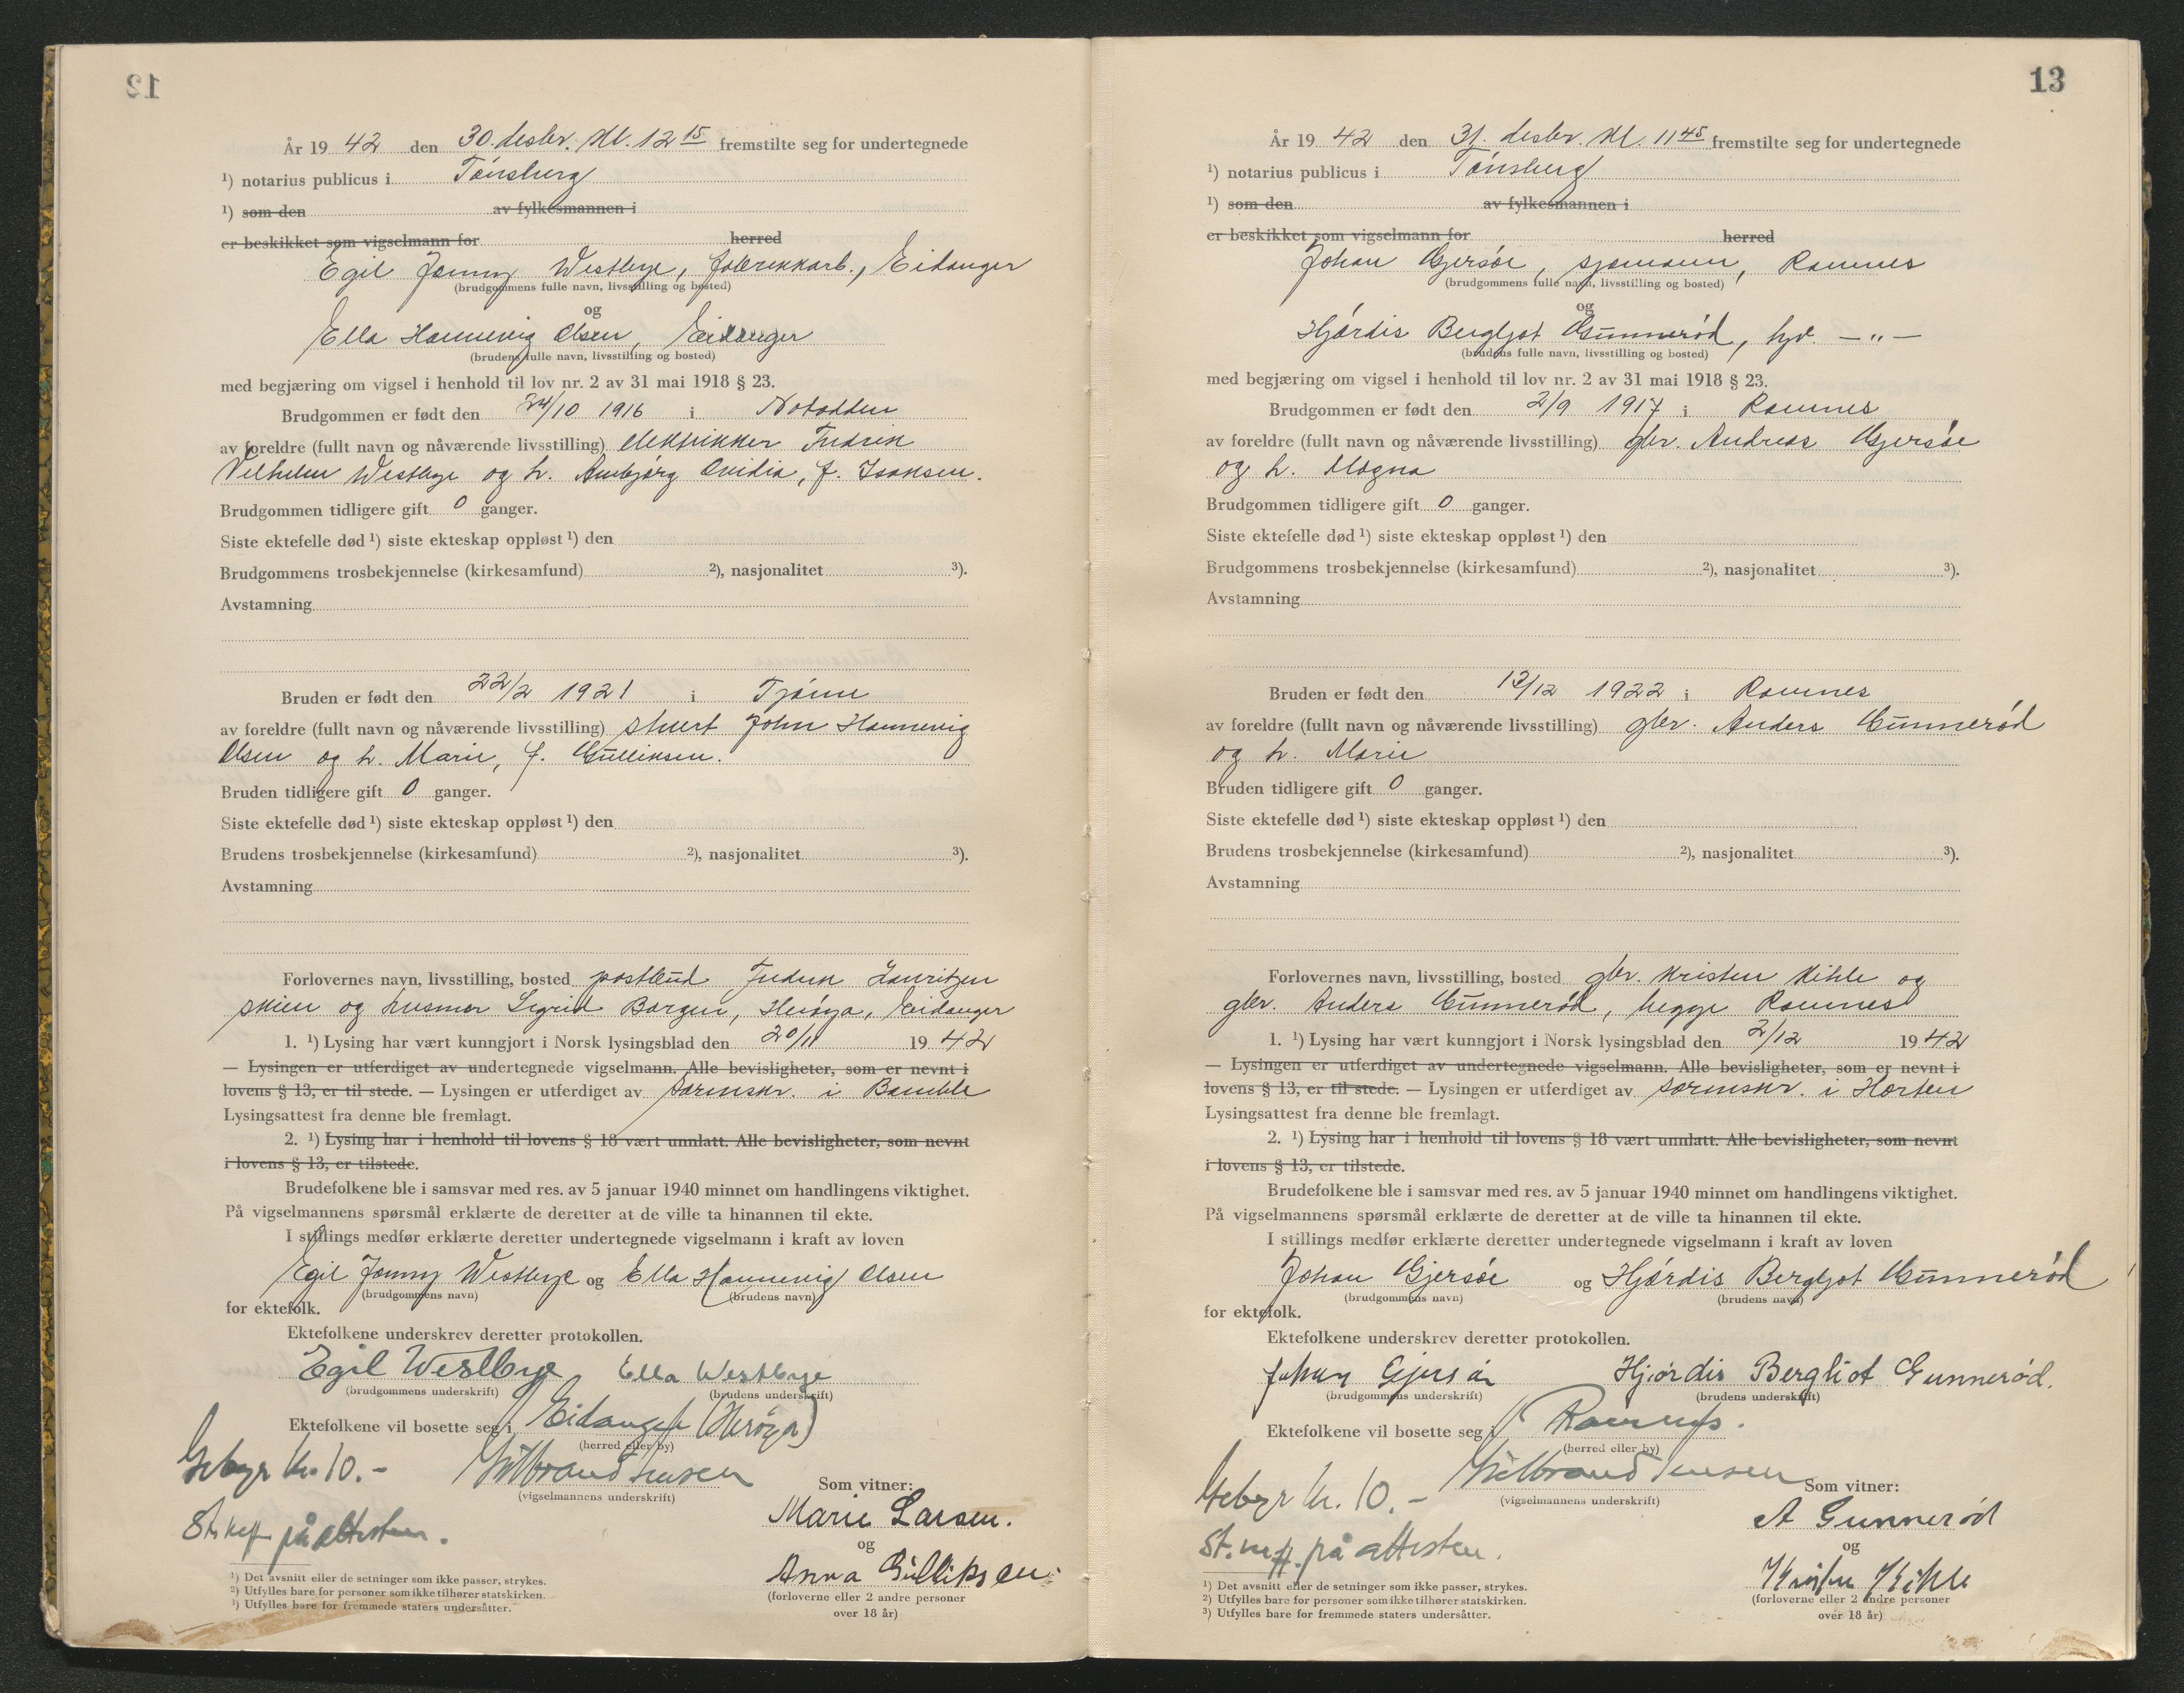 12
År 19 42 den 30. desbr. kl. 12 15 fremstilte seg for undertegnede
¹) notarius publicus i Tönsberg
¹) som den av fylkesmannen i
er beskikket som vigselmann for herred
Egil Jonny Westbye, fabrikkarb., Eidanger
(brudgommens fulle navn, livsstilling og bosted)
og
Ella Hannevig Olsen, Eidanger
(brudens fulle navn, livsstilling og bosted)
med begjæring om vigsel i henhold til lov nr. 2 av 31 mai 1918 § 23.
Brudgommen er født den 24/10 1916 i Notodden
av foreldre (fullt navn og nåværende livsstilling) elektrikker Fredrik
Vilhelm Westbye og h. Annbjørg Ovidia, f. Isaksen.
Brudgommen tidligere gift 0 ganger.
Siste ektefelle død ¹) siste ekteskap oppløst ¹) den
Brudgommens trosbekjennelse (kirkesamfund) ²), nasjonalitet ³).
Avstamning
Bruden er født den 22/2 1921 i Tjöme
av foreldre (fullt navn og nåværende livsstilling) stuert John Hannevig
Olsen og h. Marie, f. Gulliksen.
Bruden tidligere gift 0 ganger.
Siste ektefelle død ¹) siste ekteskap oppløst ¹) den
Brudens trosbekjennelse (kirkesamfund) ²), nasjonalitet ³).
Avstamning
Forlovernes navn, livsstilling, bosted postbud Fredrik Lauritzen
Skien og husmor Sigrid Borgen, Heröya, Eidanger
1. ¹) Lysing har vært kunngjort i Norsk lysingsblad den 20/11 19 42
— Lysingen er utferdiget av undertegnede vigselmann. Alle bevisligheter, som er nevnt i
lovens § 13, er til stede. — Lysingen er utferdiget av sorenskr. i Bamble
Lysingsattest fra denne ble fremlagt.
2. ¹) Lysing har i henhold til lovens § 18 vært unnlatt. Alle bevisligheter, som nevnt
i lovens § 13, er tilstede.
Brudefolkene ble i samsvar med res. av 5 januar 1940 minnet om handlingens viktighet.
På vigselmannens spørsmål erklærte de deretter at de ville ta hinannen til ekte.
I stillings medfør erklærte deretter undertegnede vigselmann i kraft av loven
Egil Jonny Westbye og Ella Hannevig Olsen
(brudgommens navn) (brudens navn)
for ektefolk.
Ektefolkene underskrev deretter protokollen.
Egil Westbye Ella Westbye
(brudgommens underskrift) (brudens underskrift)
Ektefolkene vil bosette seg i Eidanger (Herøya)
(herred eller by)
Gebyr kr. 10.- Hilbrand Jensen
(vigselmannens underskrift)
Som vitner:
Marie Larsen.
St. på attesten.
og
Anna Gulliksen.
(forloverne eller 2 andre personer
over 18 år)
¹) Det avsnitt eller de setninger som ikke passer, strykes.
²) Utfylles bare for personer som ikke tilhører statskirken.
³) Utfylles bare for fremmede staters undersåtter.
13
År 19 42 den 31. desbr. kl. 11 45 fremstilte seg for undertegnede
¹) notarius publicus i Tönsberg
¹) som den av fylkesmannen i
er beskikket som vigselmann for herred
Johan Gjersöe, sjømann, Ramnes
(brudgommens fulle navn, livsstilling og bosted)
og
Hjördis Bergljot Gunneröd, hjv. — " —
(brudens fulle navn, livsstilling og bosted)
med begjæring om vigsel i henhold til lov nr. 2 av 31 mai 1918 § 23.
Brudgommen er født den 2/9 1917 i Ramnes
av foreldre (fullt navn og nåværende livsstilling) gbr. Andreas Gjersöe
og h. Magna
Brudgommen tidligere gift 0 ganger.
Siste ektefelle død ¹) siste ekteskap oppløst ¹) den
Brudgommens trosbekjennelse (kirkesamfund) ²), nasjonalitet ³).
Avstamning
Bruden er født den 13/12 1922 i Ramnes
av foreldre (fullt navn og nåværende livsstilling) gbr. Anders Gunneröd
og h. Marie
Bruden tidligere gift 0 ganger.
Siste ektefelle død ¹) siste ekteskap oppløst ¹) den
Brudens trosbekjennelse (kirkesamfund) ²), nasjonalitet ³).
Avstamning
Forlovernes navn, livsstilling, bosted gbr. Kristen Kihle og
gbr. Anders Gunneröd, begge Ramnes
1. ¹) Lysing har vært kunngjort i Norsk lysingsblad den 2/12 19 42
— Lysingen er utferdiget av undertegnede vigselmann. Alle bevisligheter, som er nevnt i
lovens § 13, er til stede. — Lysingen er utferdiget av sorenskr. i Horten
Lysingsattest fra denne ble fremlagt.
2. ¹) Lysing har i henhold til lovens § 18 vært unnlatt. Alle bevisligheter, som nevnt
i lovens § 13, er tilstede.
Brudefolkene ble i samsvar med res. av 5 januar 1940 minnet om handlingens viktighet.
På vigselmannens spørsmål erklærte de deretter at de ville ta hinannen til ekte.
I stillings medfør erklærte deretter undertegnede vigselmann i kraft av loven
Johan Gjersöe og Hjördis Bergljot Gunneröd
(brudgommens navn) (brudens navn)
for ektefolk.
Ektefolkene underskrev deretter protokollen.
Johan Gjersöe Hjørdis Bergliot Gunnerød.
(brudgommens underskrift) (brudens underskrift)
Ektefolkene vil bosette seg i Ramnes.
(herred eller by)
Gebyr kr. 10.- Hilbrand Jensen
(vigselmannens underskrift)
Som vitner:
A Gunnerød
St. på attesten.
og
Kristen Kihle
(forloverne eller 2 andre personer
over 18 år)
¹) Det avsnitt eller de setninger som ikke passer, strykes.
²) Utfylles bare for personer som ikke tilhører statskirken.
³) Utfylles bare for fremmede staters undersåtter.